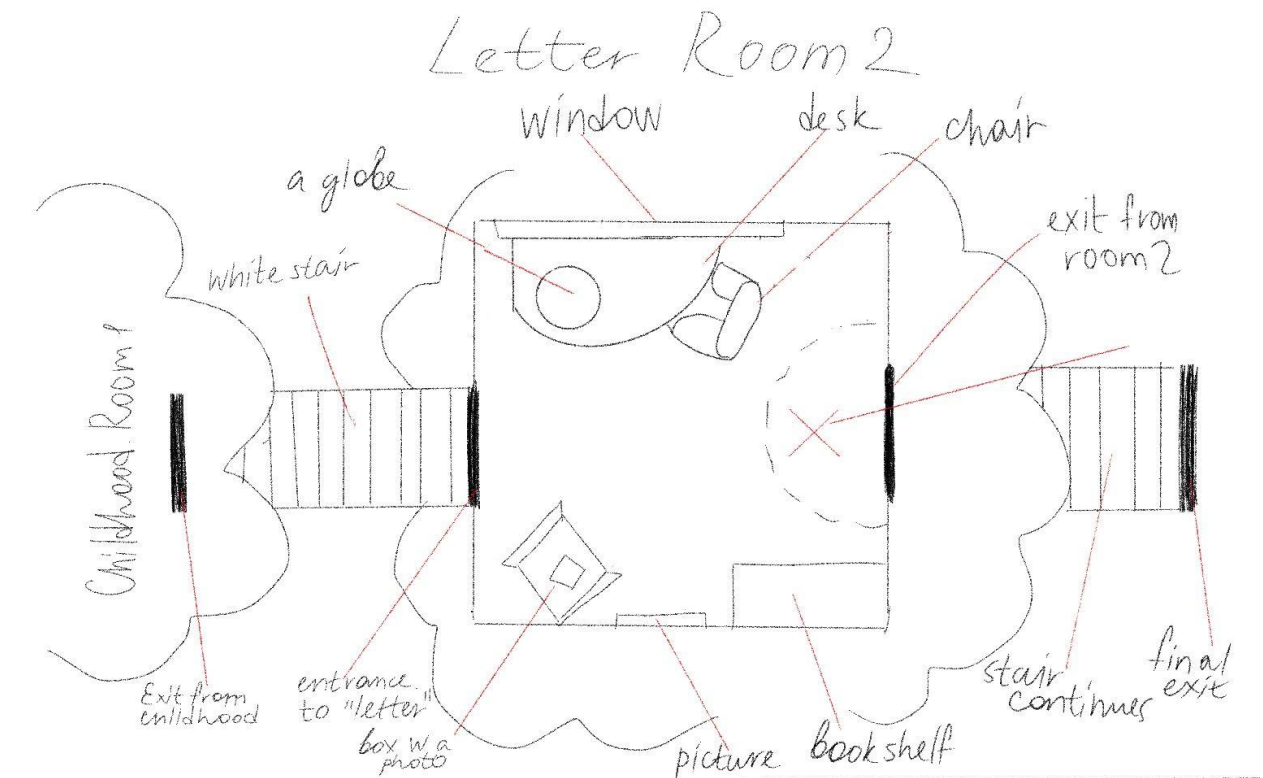 Letter Room 2
window
desk
chair
a globe
exit from
room 2
white stair
Childhood Room 1
Exit from
childhood
entrance
to "letter"
box w a
photo
picture
bookshelf
stair
continues
final
exit